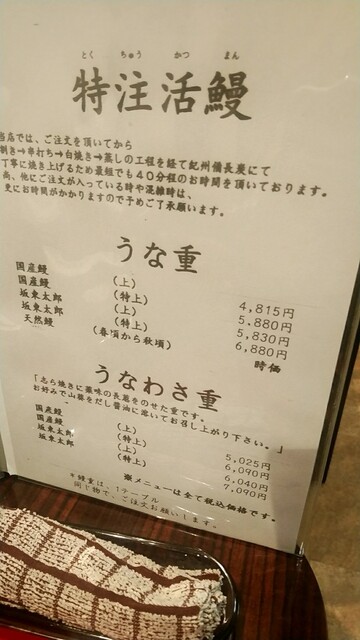 とく ちゅう かつ まん
特注活鰻
当店では、ご注文を頂いてから
割き→串打ち→白焼き→蒸しの工程を経て紀州備長炭にて
丁寧に焼き上げるため最短でも40分程のお時間を頂いております。
尚、他にご注文が入っている時や混雑時は、
更にお時間がかかりますので予めご了承願います。
うな重
国産鰻 (上) 4,815円
国産鰻 (特上) 5,880円
坂東太郎 (上) 5,830円
坂東太郎 (特上) 6,880円
天然鰻 (春頃から秋頃) 時価
うなわさ重
「志ら焼きに薬味の長葱をのせた重です。
お好みで山葵をだし醤油に溶いてお召し上がり下さい。」
国産鰻 (上) 5,025円
国産鰻 (特上) 6,090円
坂東太郎 (上) 6,040円
坂東太郎 (特上) 7,090円
※メニューは全て税込価格です。
*鰻重は、1テーブル
同じ物で、ご注文お願いします。